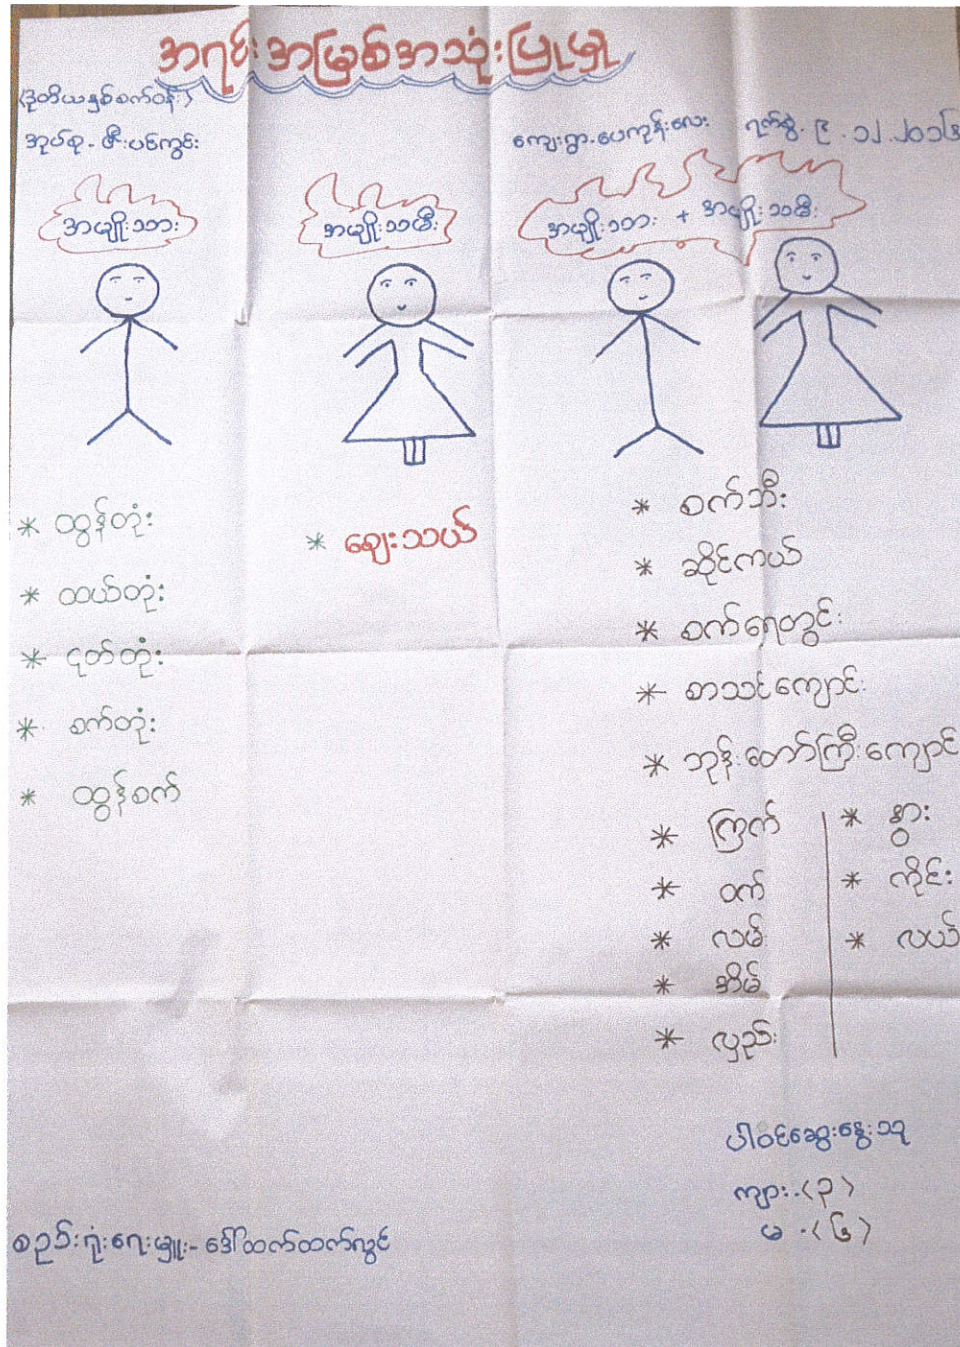 အရင်းအမြစ်အသုံးပြုမှု
(ဒုတိယနှစ်စက်ဝန်း)
အုပ်စု - ဇီးပင်ကွင်း
ကျေးရွာ-ပေကုန်းလေး ရက်စွဲ-၉.၁၂.၂၀၁၆
အမျိုးသား
အမျိုးသမီး
အမျိုးသား + အမျိုးသမီး
* ထွန်တုံး
* ထယ်တုံး
* ငုတ်တုံး
* စက်တုံး
* ထွန်စက်
* ဈေးသယ်
* စက်ဘီး
* ဆိုင်ကယ်
* စက်ရေတွင်း
* စာသင်ကျောင်း
* ဘုန်းတော်ကြီးကျောင်း
* ကြက်
* ဝက်
* လမ်း
* အိမ်
* လှည်း
* နွား
* ကိုင်း
* လယ်
ပါဝင်ဆွေးနွေးသူ
ကျား-<၃>
မ -<၆>
စည်းရုံးရေးမှူး-ဒေါ်ထက်ထက်လွင်